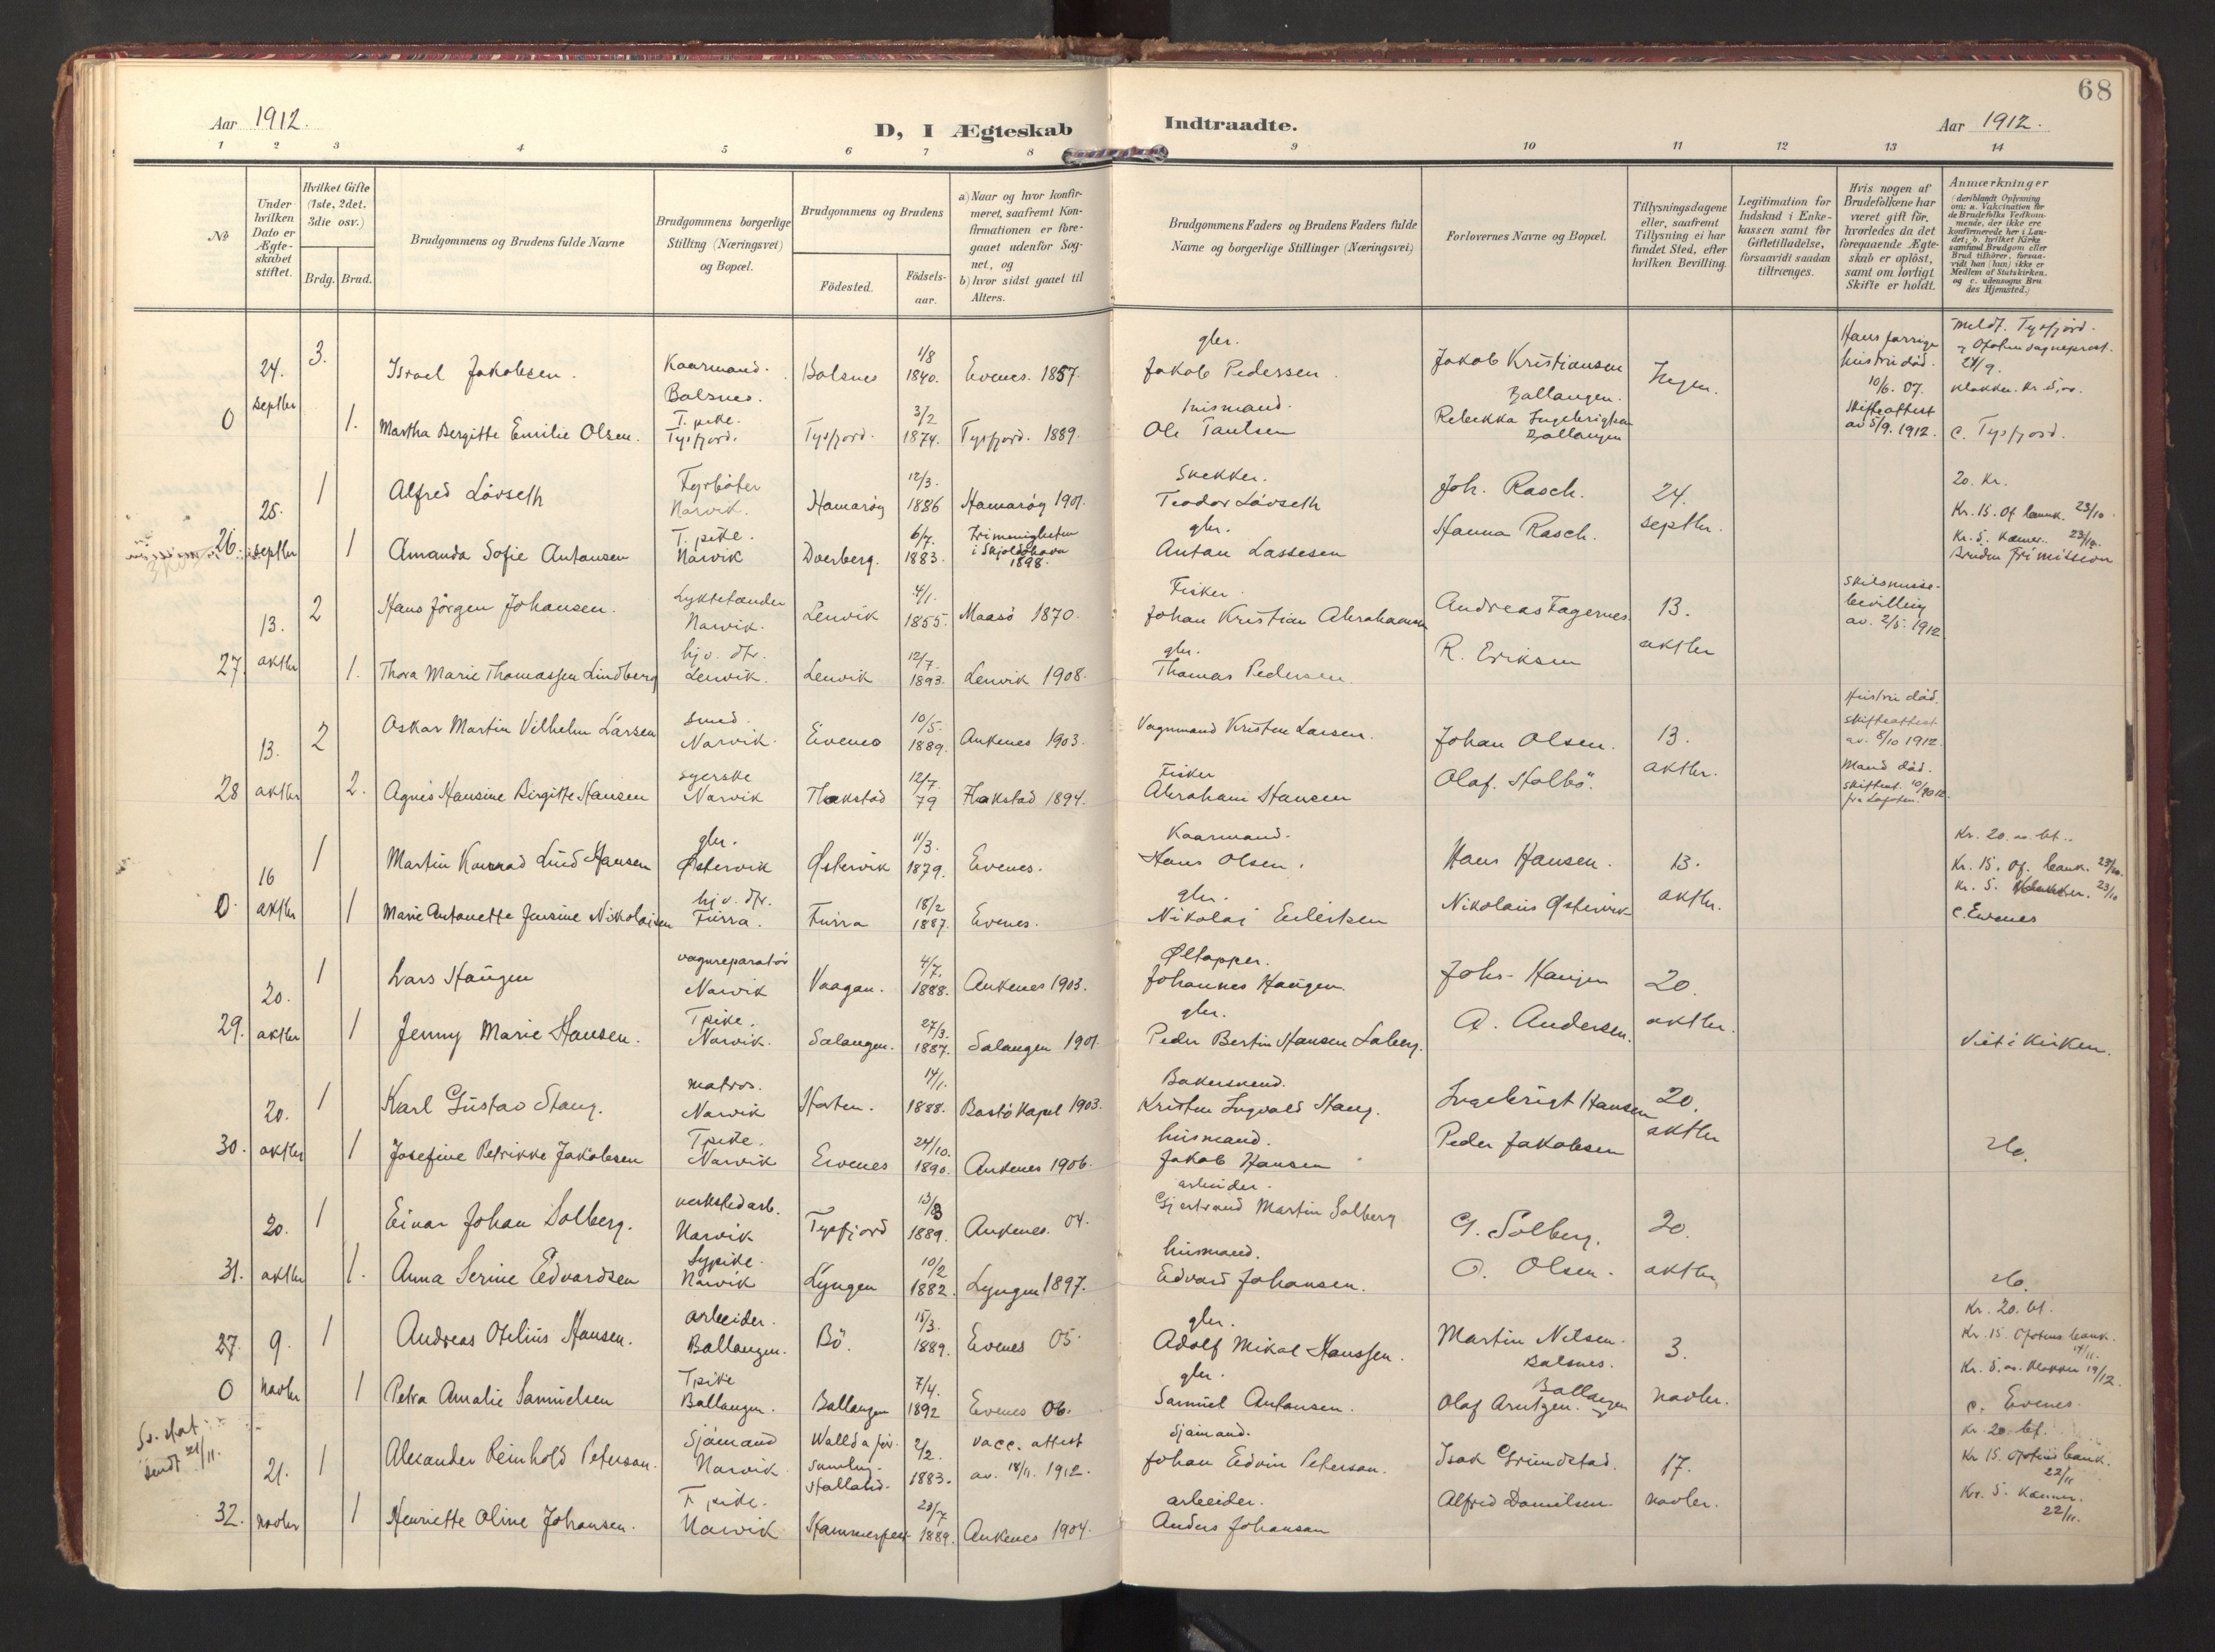 68
Aar 1912.
D, I Ægteskab Indtraadte.
Aar 1912.
1 2 3 4 5 6 7 8 9 10 11 12 13 14
№
Under hvilken Dato er Ægteskabet stiftet.
Hvilket Gifte (1ste, 2det, 3die osv.)
Brdg. Brud.
Brudgommens og Brudens fulde Navne
Brudgommens borgerlige Stilling (Næringsvei) og Bopæl.
Brudgommens og Brudens
Födested.
Födsels-aar.
a) Naar og hvor konfirmeret, saafremt Konfirmationen er foregaaet udenfor Sognet, og
b) hvor sidst gaaet til Alters.
Brudgommens Faders og Brudens Faders fulde Navne og borgerlige Stillinger (Næringsvei)
Forlovernes Navne og Bopæl.
Tillysningsdagene eller, saafremt Tillysning ei har fundet Sted, efter hvilken Bevilling.
Legitimation for Indskud i Enkekassen samt for Giftetilladelse, forsaavidt saadan tiltrænges.
Hvis nogen af Brudefolkene har været gift för, hvorledes da det foregaaende Ægteskab er oplöst, samt om lovligt Skifte er holdt.
Anmærkninger (deriblandt Oplysning om: a. Vakcination for de Brudefolks Vedkommende, der ikke ere konfirmerede her i Landet; b. hvilket Kirkesamfund Brudgom eller Brud tilhörer, forsaavidt han (hun) ikke er Medlem af Statskirken. og c. udensogns Brudes Hjemsted.)
0 24. septbr 3. Israel Jakobsen. Kaarmand. Balsnes. Balsnes 1/8 1840. Evenes. 1857. gbr. Jakob Pedersen. Jakob Kristiansen Ballangen. Ingen. Hans forrige hustru död. 10/6. 07. Skifteattest av 5/9. 1912. meldt. Tysfjord. 24/9. klokker. Kr. 5,00.
1. Martha Bergitte Emilie Olsen. T. pike. Tysfjord. Tysfjord. 3/2 1874. Tysfjord. 1889. husmand. Ole Paulsen Rebekka Ingebrigtsen Ballangen c. Tysfjord.
26. 25. septbr 1 Alfred Lövseth Fyrböter Narvik. Hamaröy 12/3. 1886 Hamaröy 1901. Snekker. Teodor Lövseth Joh. Rasch. 24. septbr. 20. Kr. Kr. 15. Of bank. 23/10.
1 Amanda Sofie Antonsen T. pike. Narvik Daerberg. 6/7. 1883. Frimenigheten i Skjoldehavn 1898. gbr. Anton Lassesen Hanna Rasch. Kr. 5. Kæmn. 23/10. Bruden Frimission
27. 13. oktbr 2 Hans Jörgen Johansen. Lyktetænder Narvik. Lenvik 4/1. 1855. Maasö 1870. Fisker. Johan Kristian Abrahamsen Andreas Fagernes 13. oktbr Skilsmisse-bevilling av. 2/5. 1912.
1. Thora Marie Thomassen Lindberg hjv. dtr. Lenvik. Lenvik 12/7. 1893. Lenvik 1908. gbr. Thomas Pedersen. R. Eriksen
28 13. oktbr 2 Oskar Martin Vilhelm Larsen Smed. Narvik. Evenes 10/5. 1889. Ankenes 1903. Vognmand Kristen Larsen. Johan Olsen. 13. oktbr. Hustru död. skifteattest av. 8/10 1912.
2. Agnes Hansine Birgitte Hansen syerske Narvik Flakstad 12/7. 79 Flakstad 1894. Fisker Abraham Hansen Olaf. Stolbö. Mand död. skifteat. 10/9 1912. fra Lofoten.
0. 16 oktbr 1 Martin Konrad Lund Hansen gbr. Østervik Østervik 11/3. 1879. Evenes. Kaarmand. Hans Olsen. Hans Hansen. 13. oktbr. Kr. 20. Kr. 15. Of. bank. 23/10. Kr. 5. 23/10
1 Marie Antonette Jensine Nikolaisen hjv. dtr. Furra. Furra 18/2 1887. Evenes. gbr. Nikolai Eilertsen Nikolaus Østervik c. Evenes
29. 20. oktbr 1 Lars Haugen vognreparatör Narvik Vaagan. 4/7. 1888. Ankenes 1903. Øltapper. Johannes Haugen. Johs. Haugen 20. oktbr.
1 Jenny Marie Hansen. T pike. Narvik. Salangen. 27/3. 1887. Salangen 1901. gbr. Peder Bertin Hansen Laberg. A. Andersen. Viet i Kirken.
30. 20. oktbr 1 Karl Gustav Stang. matros. Narvik Horten. 14/1. 1888. Bastö Kapel 1903. Bakersvend. Kristen Ingvald Stang. Ingebrigt Hansen 20. oktbr
1 Josefine Petrikke Jakobsen T pike. Narvik Evenes 24/10. 1890. Ankenes 1906. husmand. Jakob Hansen Peder Jakobsen do.
31. 20. oktbr 1 Einar Johan Solberg. verkstedarb. Narvik Tysfjord 13/8 1889. Ankenes. 04. arbeider. Gjertrand Martin Solberg G. Solberg. 20. oktbr
1. Anna Serine Edvardsen Sypike. Narvik Lyngen 10/2 1882. Lyngen 1897. husmand. Edvard Johansen. O. Olsen. do.
27. 9. novbr 1 Andreas Otelius Hansen. arbeider. Ballangen. Bö. 15/3. 1889. Evenes 05. gbr. Adolf Mikal Hanssen. Martin Nilsen. Balsnes. 3. novbr. Kr. 20. bl. Kr. 15. Ofotens bank. 14/11. Kr. 5. Klokker 19/12.
0 1 Petra Amalie Samuelsen T pike Ballangen. Ballangen 7/4. 1892 Evenes 06. gbr. Samuel Antonsen. Olaf Arntzen. Ballangen c. Evenes.
Sv. stat. sendt 21/11.
32. 21. novbr 1 Alexander Reinhold Peterson. Sjömand Narvik Wallda för-samling. Halland. 2/2. 1883. vacc. attest av. 18/11. 1912. sjömand. Johan Edvin Peterson. Isak Grundstad. 17. novbr. Kr. 20. bl. Kr 15. Ofotens bank. 22/11
1 Henriette Oline Johansen. T pike. Narvik Hammerfest 23/7 1889. Ankenes 1904. arbeider. Anders Johansen Alfred Danielsen. Kr. 5. Kæmner. 22/11.